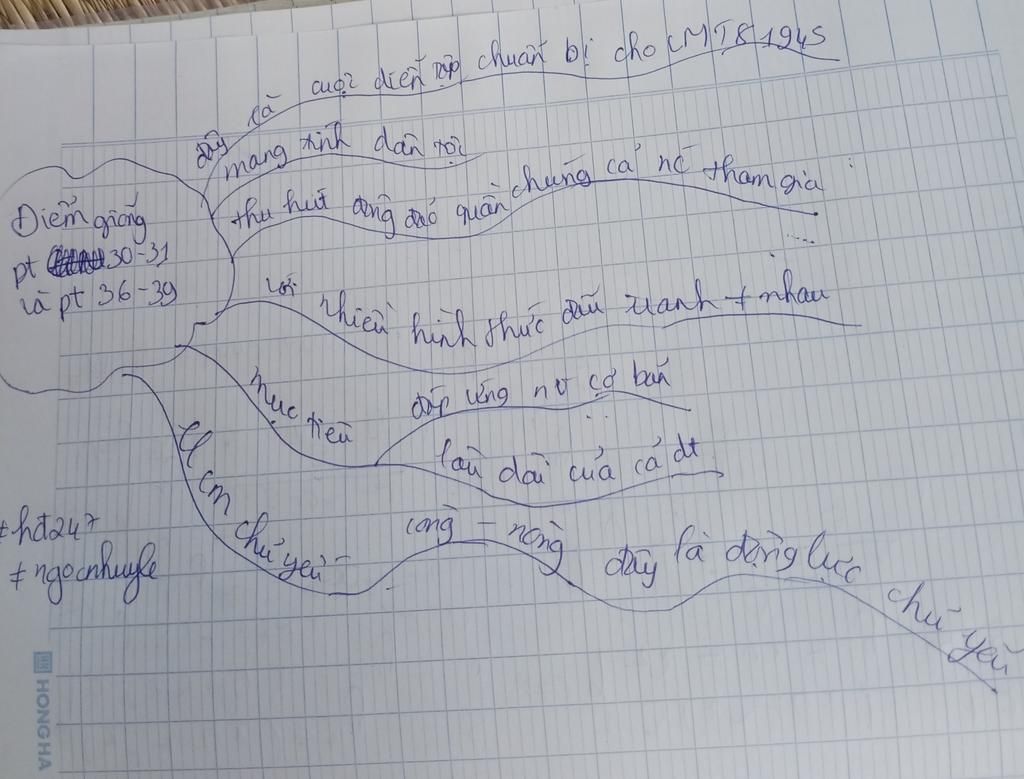 đây là cuộc diễn tập chuẩn bị cho CMT8 1945
mang tính dân tộc
thu hút đông đảo quần chúng cả nc tham gia
Điểm giống
pt 30-31
và pt 36-39
với nhiều hình thức đấu tranh ≠ nhau
Mục tiêu
đáp ứng nv cơ bản
lâu dài của cả dt
LL cm chủ yếu
công - nông đây là động lực chủ yếu
≠hđ247
≠ngocnhuyle
HONG HA